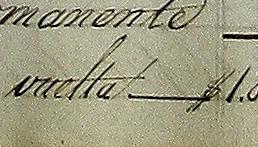 manente
vuelta $1.